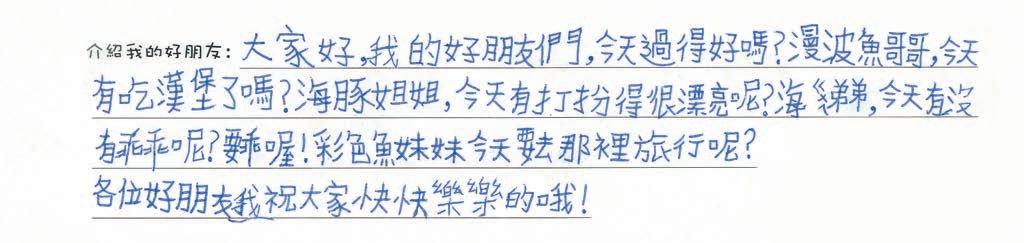 介紹我的好朋友：大家好,我的好朋友們,今天過得好嗎?漫波魚哥哥,今天
有吃漢堡了嗎?海豚姐姐,今天有打扮得很漂亮呢?海弟弟,今天有沒
有乖乖呢?要乖喔!彩色魚妹妹今天要去那裡旅行呢?
各位好朋友我祝大家快快樂樂的哦!